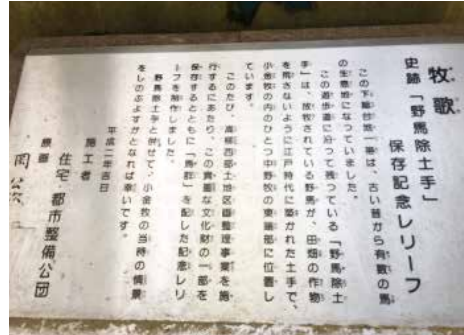 牧歌
史跡「野馬除土手」
保存記念レリーフ
この下総台地一帯は、古い昔から有数の馬
の生息地になっていました。
この遊歩道に沿って残っている「野馬除土
手」は、放牧されている野馬が、田畑の作物
を荒さないように江戸時代に築かれた土手で、
小金牧の内のひとつ中野牧の東端部に位置し
ています。
このたび、高柳西部土地区画整理事業を施
行するにあたり、この貴重な文化財の一部を
保存するとともに「馬群」を配した記念レリ
ーフを制作しました。
野馬除土手と併せて、小金牧の当時の情景
をしのぶよすがとなれば幸いです。
平成二年吉日
施工者
住宅 都市整備公団
原画